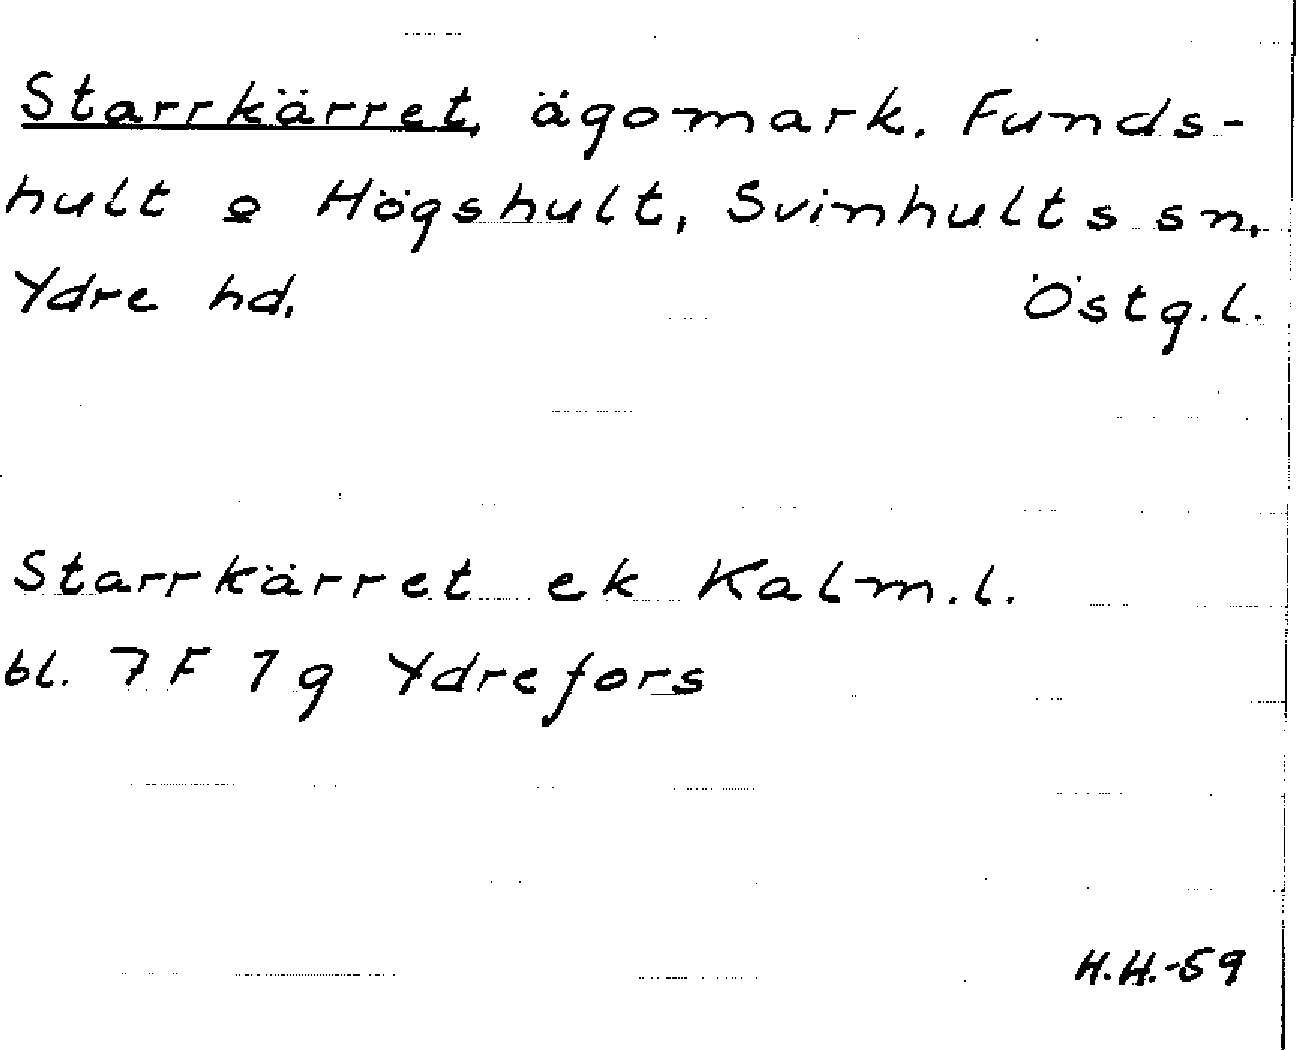 Starrkärret, ägomark. Funds-
hult o Högshult, Svinhults sn,
Ydre hd. Östg.l.
Starrkärret ek Kalm.l.
bl. 7F 7g Ydrefors
H.H.-59